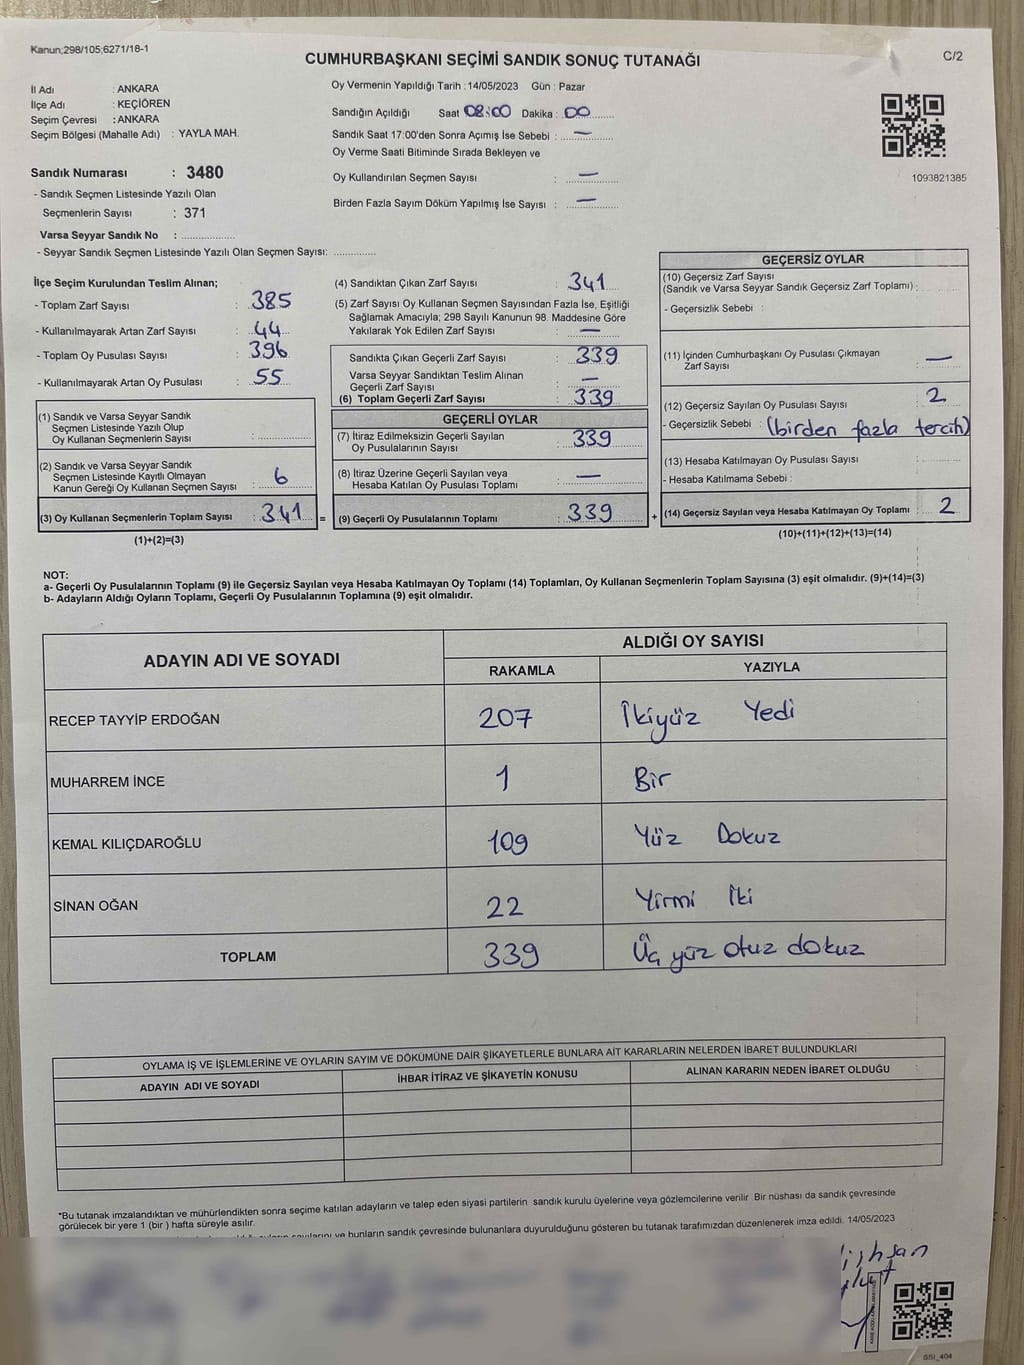 Kanun;298/105;6271/18-1
CUMHURBAŞKANI SEÇİMİ SANDIK SONUÇ TUTANAĞI
C/2
İl Adı : ANKARA
İlçe Adı : KEÇİÖREN
Seçim Çevresi : ANKARA
Seçim Bölgesi (Mahalle Adı) : YAYLA MAH.
Sandık Numarası : 3480
- Sandık Seçmen Listesinde Yazılı Olan
Seçmenlerin Sayısı : 371
Varsa Seyyar Sandık No : ..................
- Seyyar Sandık Seçmen Listesinde Yazılı Olan Seçmen Sayısı: ...............
Oy Vermenin Yapıldığı Tarih : 14/05/2023 Gün : Pazar
Sandığın Açıldığı Saat 08:00 Dakika : 00
Sandık Saat 17:00'den Sonra Açımış İse Sebebi : —
Oy Verme Saati Bitiminde Sırada Bekleyen ve
Oy Kullandırılan Seçmen Sayısı : —
Birden Fazla Sayım Döküm Yapılmış İse Sayısı : —
1093821385
İlçe Seçim Kurulundan Teslim Alınan;
- Toplam Zarf Sayısı : 385
- Kullanılmayarak Artan Zarf Sayısı : 44
- Toplam Oy Pusulası Sayısı : 396
- Kullanılmayarak Artan Oy Pusulası : 55
(1) Sandık ve Varsa Seyyar Sandık
Seçmen Listesinde Yazılı Olup
Oy Kullanan Seçmenlerin Sayısı :
(2) Sandık ve Varsa Seyyar Sandık
Seçmen Listesinde Kayıtlı Olmayan
Kanun Gereği Oy Kullanan Seçmen Sayısı : 6
(3) Oy Kullanan Seçmenlerin Toplam Sayısı : 341 =
(1)+(2)=(3)
(4) Sandıktan Çıkan Zarf Sayısı : 341
(5) Zarf Sayısı Oy Kullanan Seçmen Sayısından Fazla İse, Eşitliği
Sağlamak Amacıyla; 298 Sayılı Kanunun 98. Maddesine Göre
Yakılarak Yok Edilen Zarf Sayısı : —
Sandıkta Çıkan Geçerli Zarf Sayısı : 339
Varsa Seyyar Sandıktan Teslim Alınan
Geçerli Zarf Sayısı : —
(6) Toplam Geçerli Zarf Sayısı : 339
GEÇERLİ OYLAR
(7) İtiraz Edilmeksizin Geçerli Sayılan
Oy Pusulalarının Sayısı : 339
(8) İtiraz Üzerine Geçerli Sayılan veya
Hesaba Katılan Oy Pusulası Toplamı : —
(9) Geçerli Oy Pusulalarının Toplamı : 339 +
GEÇERSİZ OYLAR
(10) Geçersiz Zarf Sayısı
(Sandık ve Varsa Seyyar Sandık Geçersiz Zarf Toplamı) :
- Geçersizlik Sebebi :
(11) İçinden Cumhurbaşkanı Oy Pusulası Çıkmayan
Zarf Sayısı : —
(12) Geçersiz Sayılan Oy Pusulası Sayısı : 2
- Geçersizlik Sebebi : (birden fazla tercih)
(13) Hesaba Katılmayan Oy Pusulası Sayısı :
- Hesaba Katılmama Sebebi :
(14) Geçersiz Sayılan veya Hesaba Katılmayan Oy Toplamı : 2
(10)+(11)+(12)+(13)=(14)
NOT:
a- Geçerli Oy Pusulalarının Toplamı (9) ile Geçersiz Sayılan veya Hesaba Katılmayan Oy Toplamı (14) Toplamları, Oy Kullanan Seçmenlerin Toplam Sayısına (3) eşit olmalıdır. (9)+(14)=(3)
b- Adayların Aldığı Oyların Toplamı, Geçerli Oy Pusulalarının Toplamına (9) eşit olmalıdır.
ADAYIN ADI VE SOYADI ALDIĞI OY SAYISI
RAKAMLA YAZIYLA
RECEP TAYYİP ERDOĞAN 207 İkiyüz Yedi
MUHARREM İNCE 1 Bir
KEMAL KILIÇDAROĞLU 109 Yüz Dokuz
SİNAN OĞAN 22 Yirmi İki
TOPLAM 339 Üç yüz otuz dokuz
OYLAMA İŞ VE İŞLEMLERİNE VE OYLARIN SAYIM VE DÖKÜMÜNE DAİR ŞİKAYETLERLE BUNLARA AİT KARARLARIN NELERDEN İBARET BULUNDUKLARI
ADAYIN ADI VE SOYADI İHBAR İTİRAZ VE ŞİKAYETİN KONUSU ALINAN KARARIN NEDEN İBARET OLDUĞU
*Bu tutanak imzalandıktan ve mühürlendikten sonra seçime katılan adayların ve talep eden siyasi partilerin sandık kurulu üyelerine veya gözlemcilerine verilir. Bir nüshası da sandık çevresinde
görülecek bir yere 1 (bir ) hafta süreyle asılır.
ve bunların sandık çevresinde bulunanlara duyurulduğunu gösteren bu tutanak tarafımızdan düzenlenerek imza edildi. 14/05/2023
GSI_404